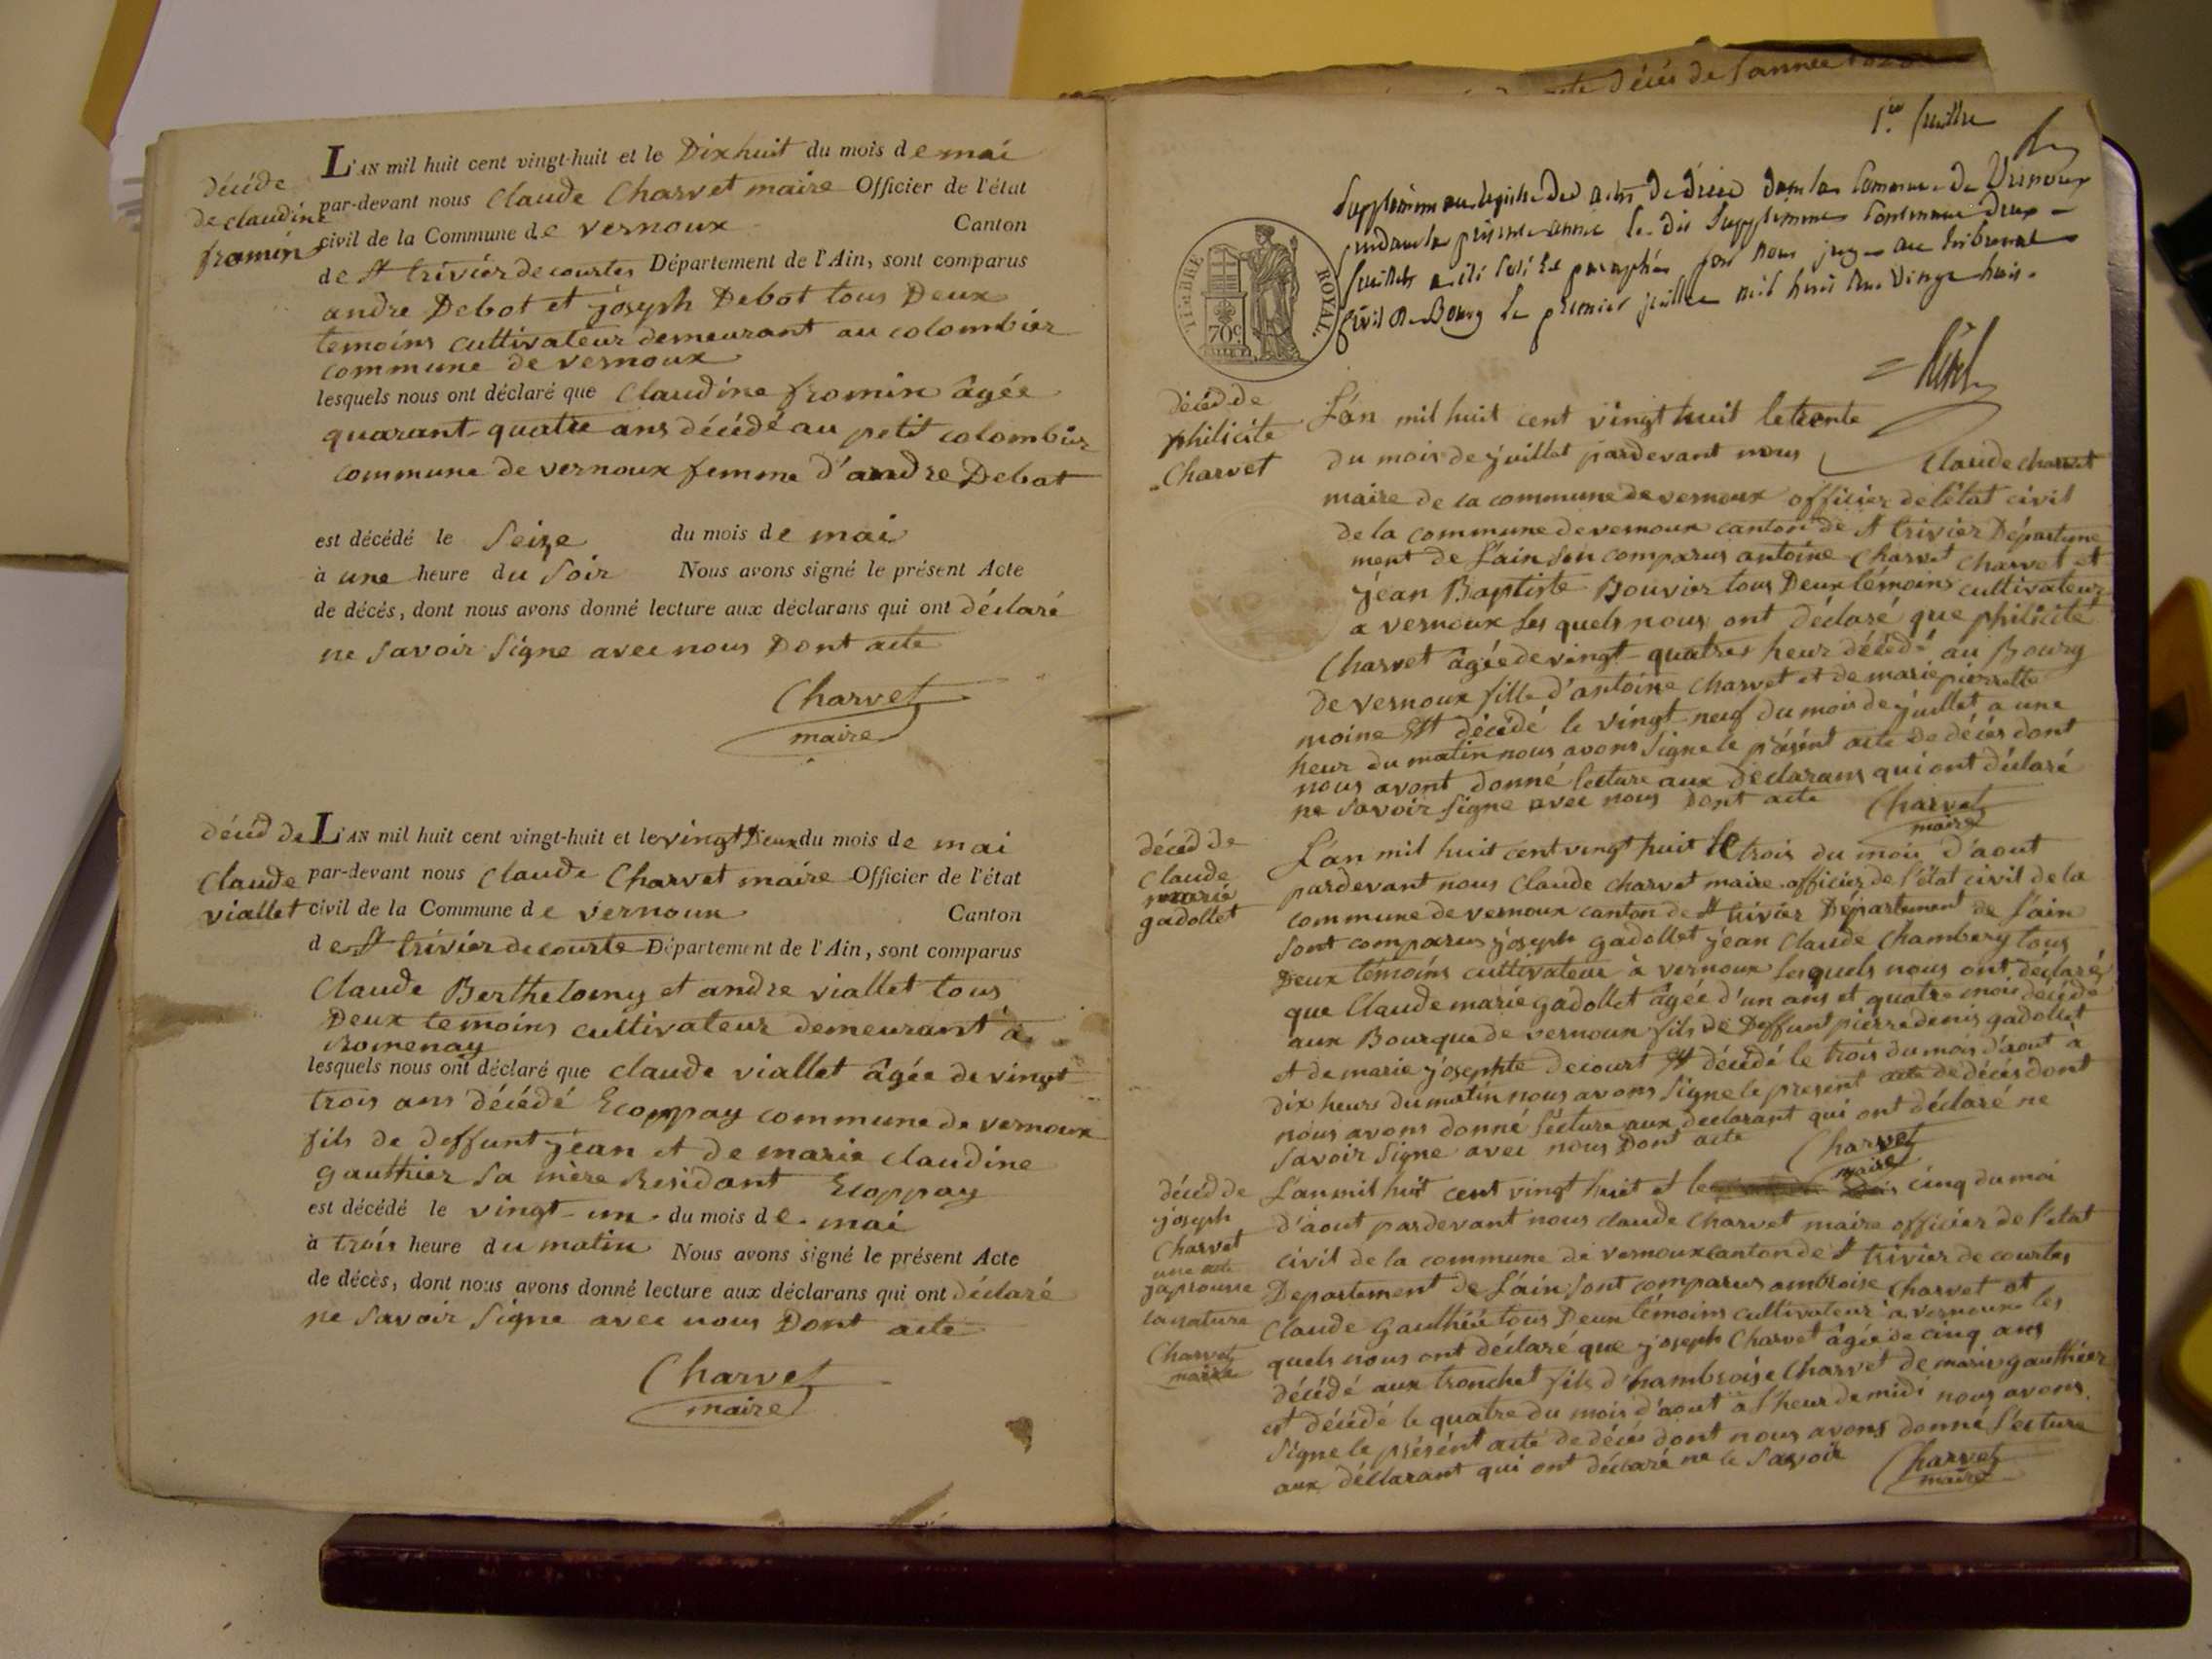 décède
de claudine
fromin
L'AN mil huit cent vingt-huit et le Dix huit du mois de mai
par-devant nous Claude Charvet maire Officier de l'état
civil de la Commune de vernoux Canton
de St trivier de courtes Département de l'Ain, sont comparus
andre Debot et joseph Debot tous Deux
temoins cultivateur demeurant au colombier
commune de vernoux
lesquels nous ont déclaré que Claudine fromin âgée
quarant-quatre ans décédé au petit colombier
commune de vernoux femme d'andre Debat
est décédé le Seize du mois de mai
à une heure du Soir Nous avons signé le présent Acte
de décès, dont nous avons donné lecture aux déclarans qui ont déclaré
ne Savoir Signe avec nous Dont acte
Charvet
maire
décéd de
Claude
viallet
L'AN mil huit cent vingt-huit et le vingt Deux du mois de mai
par-devant nous Claude Charvet maire Officier de l'état
civil de la Commune de vernoux Canton
de St trivier de courte Département de l'Ain, sont comparus
Claude Berthelomy et andre viallet tous
Deux temoins cultivateur demeurant à
Romenay
lesquels nous ont déclaré que claude viallet âgée de vingt
trois ans décédé Ecoppay commune de vernoux
fils de deffunt jean et de marie claudine
gauthier Sa mère Residant Ecoppay
est décédé le vingt-un du mois de mai
à trois heure du matin Nous avons signé le présent Acte
de décès, dont nous avons donné lecture aux déclarans qui ont déclaré
ne Savoir Signe avec nous Dont acte
Charvet
maire
décès de l'année
1er feuillet
Supplément au registre des actes de décès dans la Commune de Vernoux
pendant la présente année le dit Supplément Contenant deux
feuillets a été coté et paraphé par nous juge au tribunal
Civil de Bourg le premier juillet mil huit cent vingt huit.
TIMBRE ROYAL.
70c
décéd de
philicite
Charvet
L'an mil huit cent vingt huit le trente
du mois de juillet pardevant nous Claude charvet
maire de la commune de vernoux officier de l'état civil
de la commune de vernoux canton de St trivier Départe
ment de L'ain son comparus antoine Charvet Charvet et
jean Baptiste Bouvier tous Deux témoins cultivateur
a vernoux Les quels nous ont déclaré que philicité
Charvet âgée de vingt-quatres heur décédé au Bourg
de vernoux fille d'antoine Charvet et de marie pierrette
moine Est décédé le vingt neuf du mois de juillet a une
heur du matin nous avons Signe le présent acte de décès dont
nous avont donné lecture aux déclarans qui ont déclaré
ne Savoir Signe avec nous Dont acte
Charvet
maire
décéd de
Claude
marie
gadollet
L'an mil huit cent vingt huit le trois du mois d'aout
pardevant nous Claude charvet maire officier de l'état civil de la
commune de vernoux canton de St trivier Département de L'ain
Sont comparus joseph gadollet jean Claude Chambery tous
Deux témoins cultivateur à vernoux Lesquels nous ont déclaré
que Claude marie gadollet âgée d'un ans et quatre mois décédé
aux Bourque de vernoux fils de Deffunt pierre denis gadollet
et de marie josephte decourt Est décédé le trois du mois d'aout à
dix heurs du matin nous avons Signe le present acte de décès dont
nous avons donné lecture aux declarant qui ont déclaré ne
Savoir Signe avec nous Dont acte
Charvet
maire
décéd de
joseph
Charvet
une
japrouve
la rature
Charvet
maire
L'an mil huit cent vingt huit et le cinq du moi
d'aout pardevant nous claude Charvet maire officier de l'état
civil de la commune de vernoux canton de St trivier de courtes
Departement de L'ain Sont comparus ambroise Charvet et
Claude Gauthié tous Deux témoins cultivateur a vernoux les
quels nous ont déclaré que joseph Charvet âgée de cinq ans
décédé aux tronchet fils d'hambroise Charvet de marie gauthier
est décédé le quatre du mois d'aout a l'heur de midi nous avons
Signe le présént acte de décès dont nous avons donné lecture
aux déclarant qui ont déclaré ne le Savoir
Charvet
maire